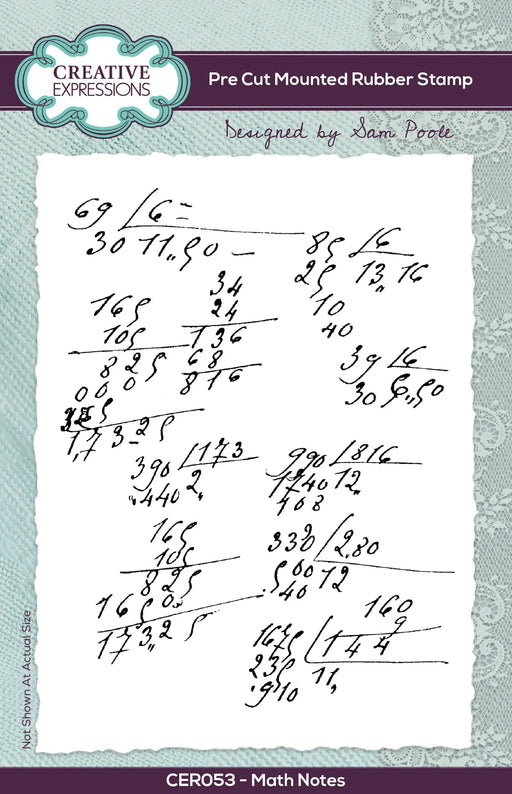 CREATIVE
EXPRESSIONS
Pre Cut Mounted Rubber Stamp
Designed by Sam Poole
69 6 =
30 11,,50 —
85 6
25 13,,16
10
40
34
24
136
68
816
165
105
825
000
173-25
39 6
30 6,,50
390 173
440 2,,
990 816
1740 12,,
408
165
105
825
1650
173,,25
330 2,80
500 12
40
160
9
144
1675
235 11,,
910
Not Shown At Actual Size
CER053 - Math Notes